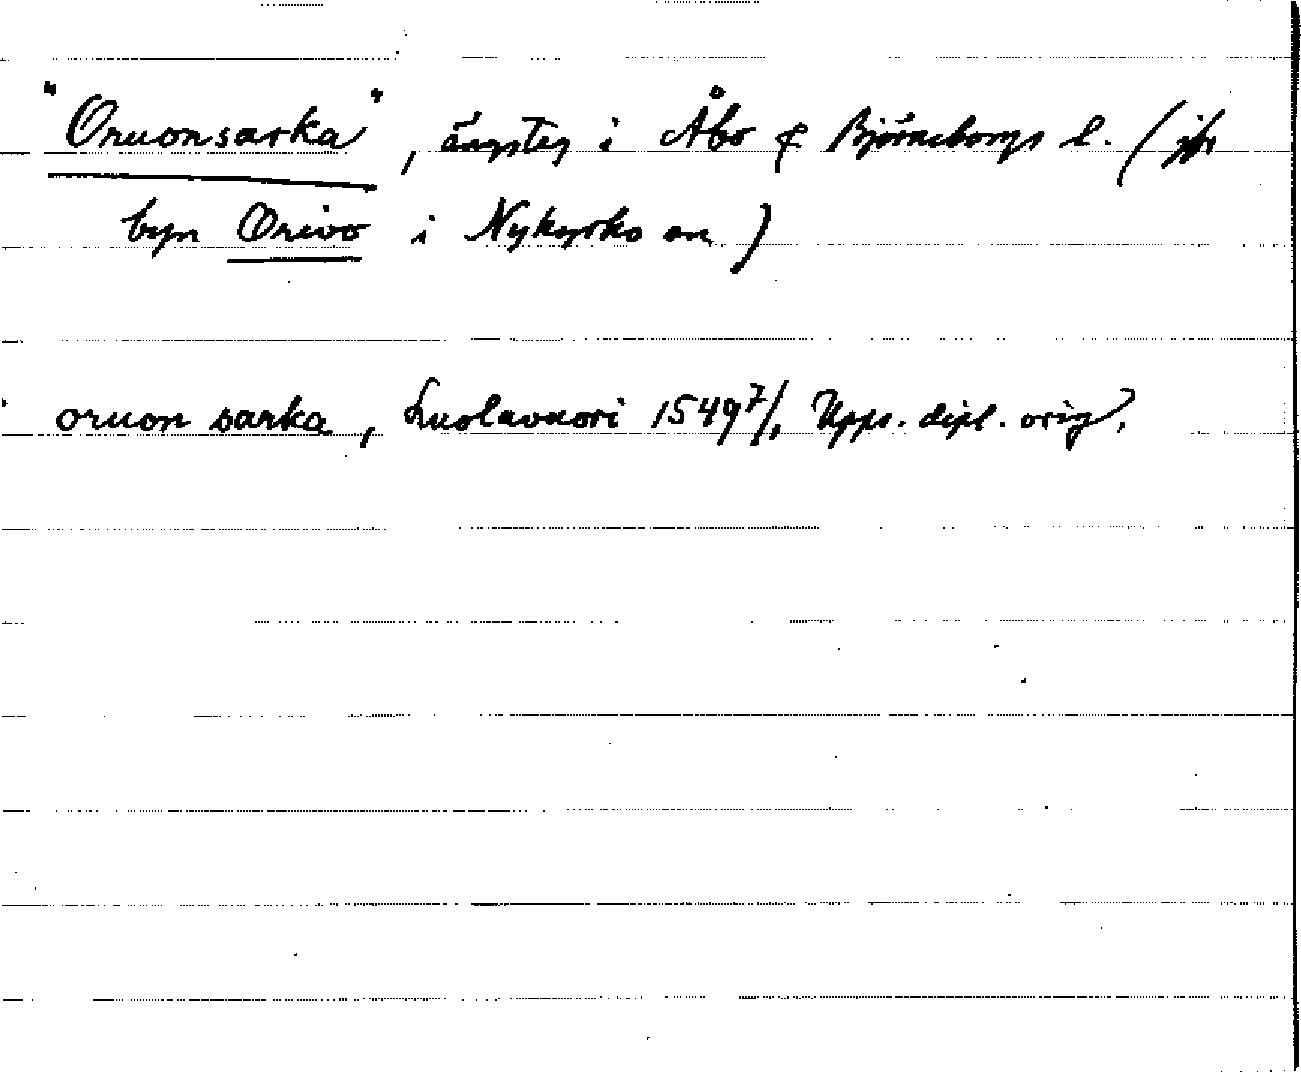 "Oruonsarka", ängsteg i Åbo & Björneborgs l. (jfr
byn Orivo i Nykyrko sn)
oruon sarka, Kuolavuori 1549 7/1, Upps. dipl. orig.